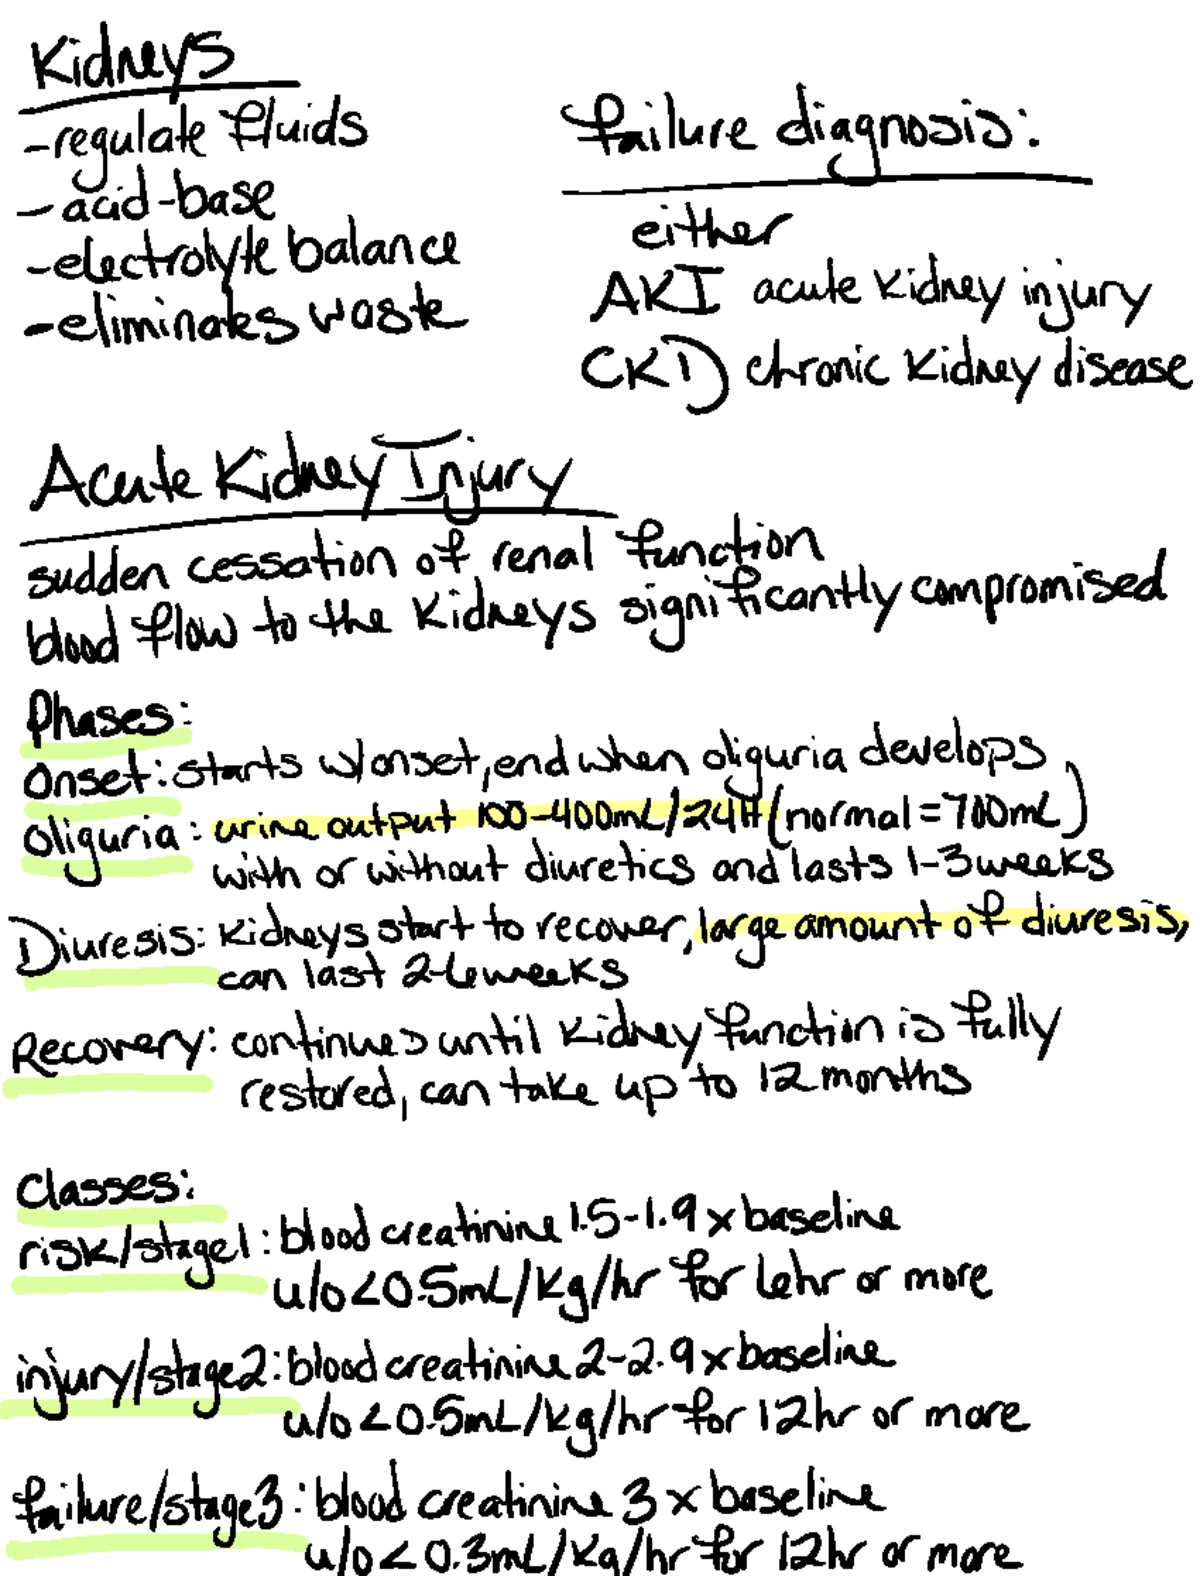 Kidneys
-regulate fluids
-acid-base
-electrolyte balance
-eliminates waste
failure diagnosis:
either
AKI acute kidney injury
CKD chronic kidney disease
Acute Kidney Injury
sudden cessation of renal function
blood flow to the kidneys significantly compromised
Phases:
Onset: starts w/onset, end when oliguria develops
Oliguria: urine output 100-400mL/24H (normal=700mL)
with or without diuretics and lasts 1-3 weeks
Diuresis: kidneys start to recover, large amount of diuresis,
can last 2-6 weeks
Recovery: continues until kidney function is fully
restored, can take up to 12 months
Classes:
risk/stage1: blood creatinine 1.5-1.9 x baseline
u/o<0.5mL/kg/hr for 6hr or more
injury/stage2: blood creatinine 2-2.9 x baseline
u/o<0.5mL/kg/hr for 12hr or more
failure/stage3: blood creatinine 3 x baseline
u/o<0.3mL/kg/hr for 12hr or more